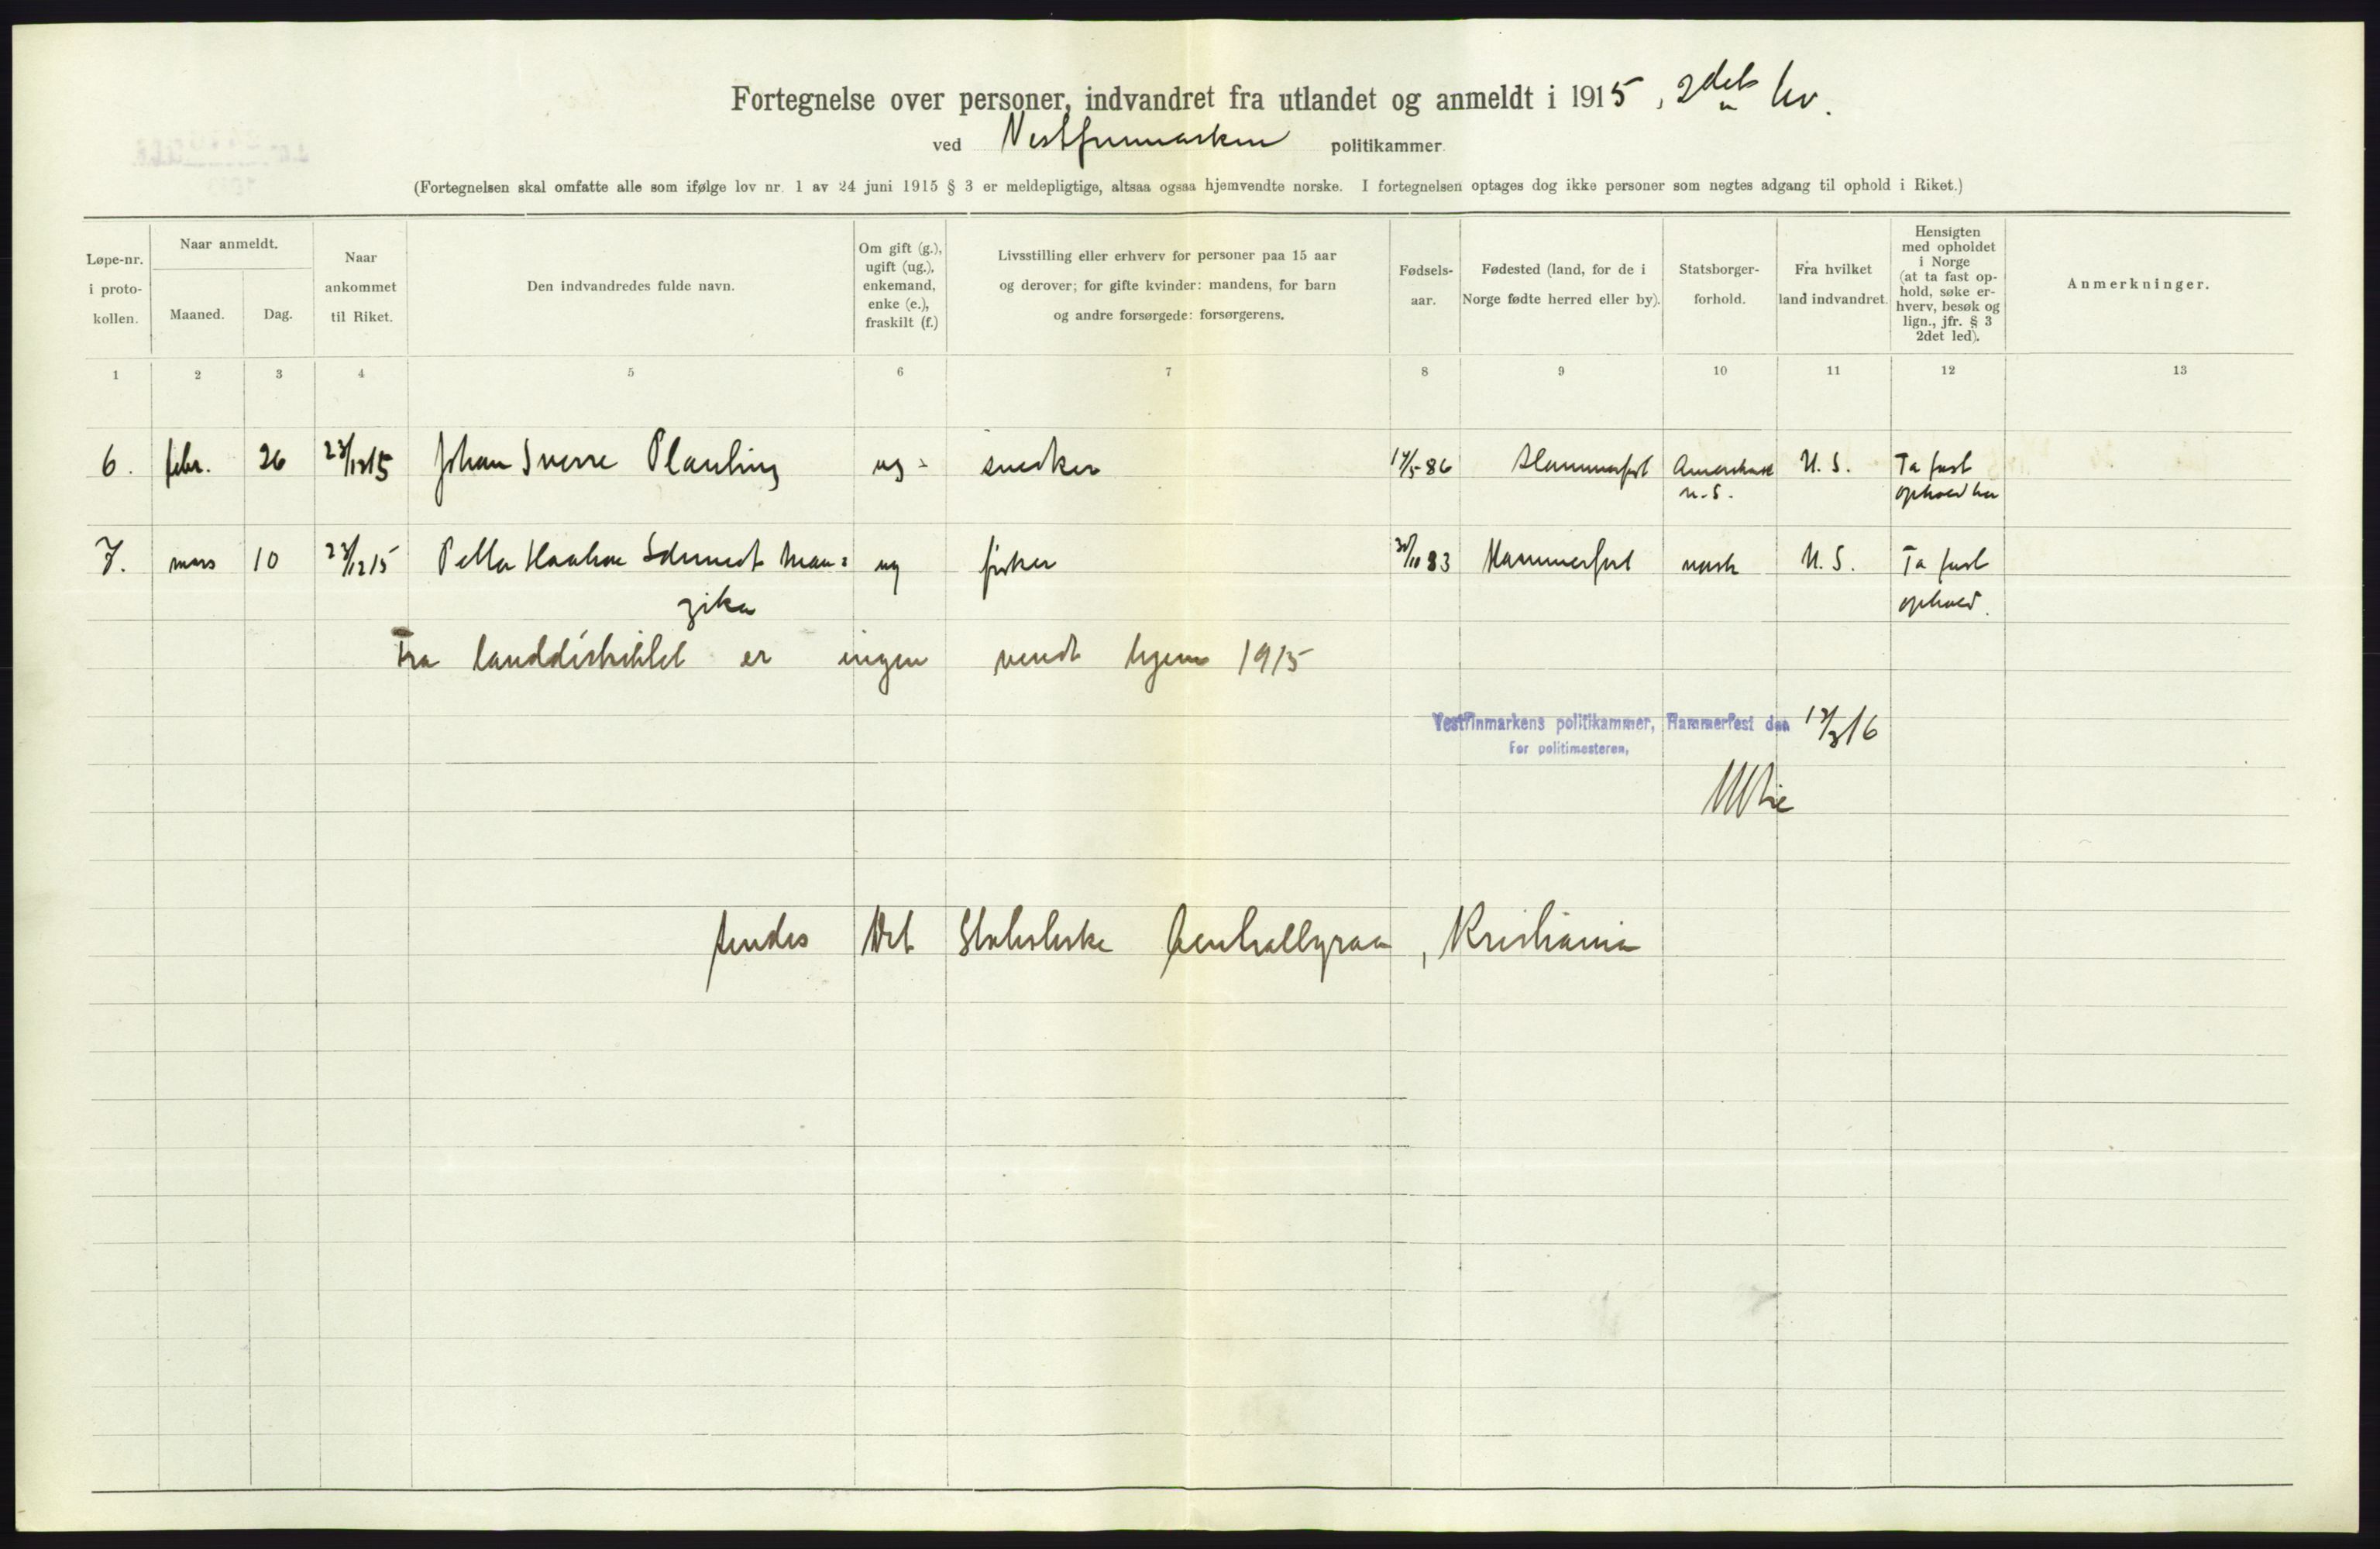 Fortegnelse over personer, indvandret fra utlandet og anmeldt i 1915, 2det hv.
ved Vestfinmarken politikammer
(Fortegnelsen skal omfatte alle som ifølge lov nr. 1 av 24 juni 1915 § 3 er meldepligtige, altsaa ogsaa hjemvendte norske. I fortegnelsen optages dog ikke personer som negtes adgang til ophold i Riket.)
Løpe-nr.
i proto-
kollen.
Naar anmeldt.
Maaned.
Dag.
Naar
ankommet
til Riket.
Den indvandredes fulde navn.
Om gift (g.),
ugift (ug.),
enkemand,
enke (e.),
fraskilt (f.)
Livsstilling eller erhverv for personer paa 15 aar
og derover; for gifte kvinder: mandens, for barn
og andre forsørgede: forsørgerens.
Fødsels-
aar.
Fødested (land, for de i
Norge fødte herred eller by).
Statsborger-
forhold.
Fra hvilket
land indvandret.
Hensigten
med opholdet
i Norge
(at ta fast op-
hold, søke er-
hverv, besøk og
lign., jfr. § 3
2det led).
Anmerkninger.
1 2 3 4 5 6 7 8 9 10 11 12 13
6. febr. 26 23/12 15 Johan Sverre ug snedker 86 Hammerfest Amerikansk U. S. Ta fast
U.S. ophold her
7. mars 10 23/12 15 ug fisker 83 Hammerfest norsk U. S. Ta fast
zika ophold.
Fra landdistriktet er ingen vendt hjem 1915
Vestfinmarkens politikammer, Hammerfest den /3 16
For politimesteren,
Sendes Det Statistiske Centralbyraa, Kristiania